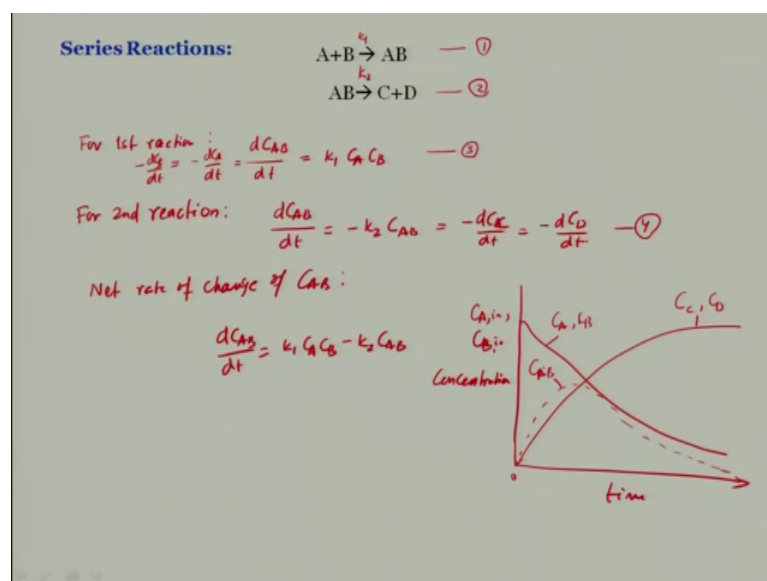 Series Reactions:
A+B → AB — ①
k₁
AB → C+D — ②
k₂
For 1st raction :
-dCB/dt = -dCA/dt = dCAB/dt = k₁ CA CB — ③
For 2nd reaction: dCAB/dt = -k₂ CAB = -dCC/dt = -dCD/dt — ④
Net rate of change of CAB :
dCAB/dt = k₁ CA CB - k₂ CAB
CA,in,
CB,in
Concentration
CA, CB
CC, CD
CAB
0
time